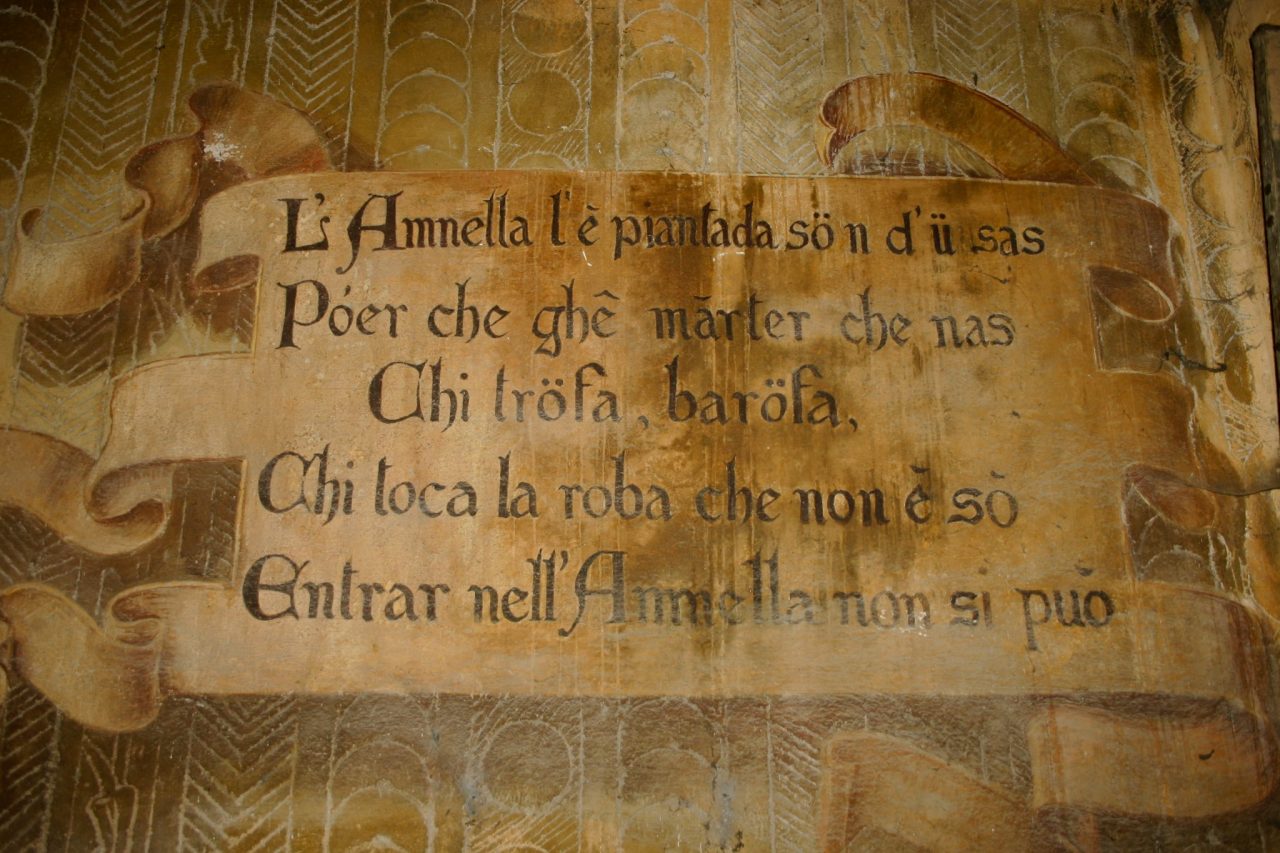 L'Amnella l'è piantada sö n d'ü sas
Póer che ghê mārter che nas
Chi tröfa, baröfa,
Chi toca la roba che non è sò
Entrar nell'Amnella non si può